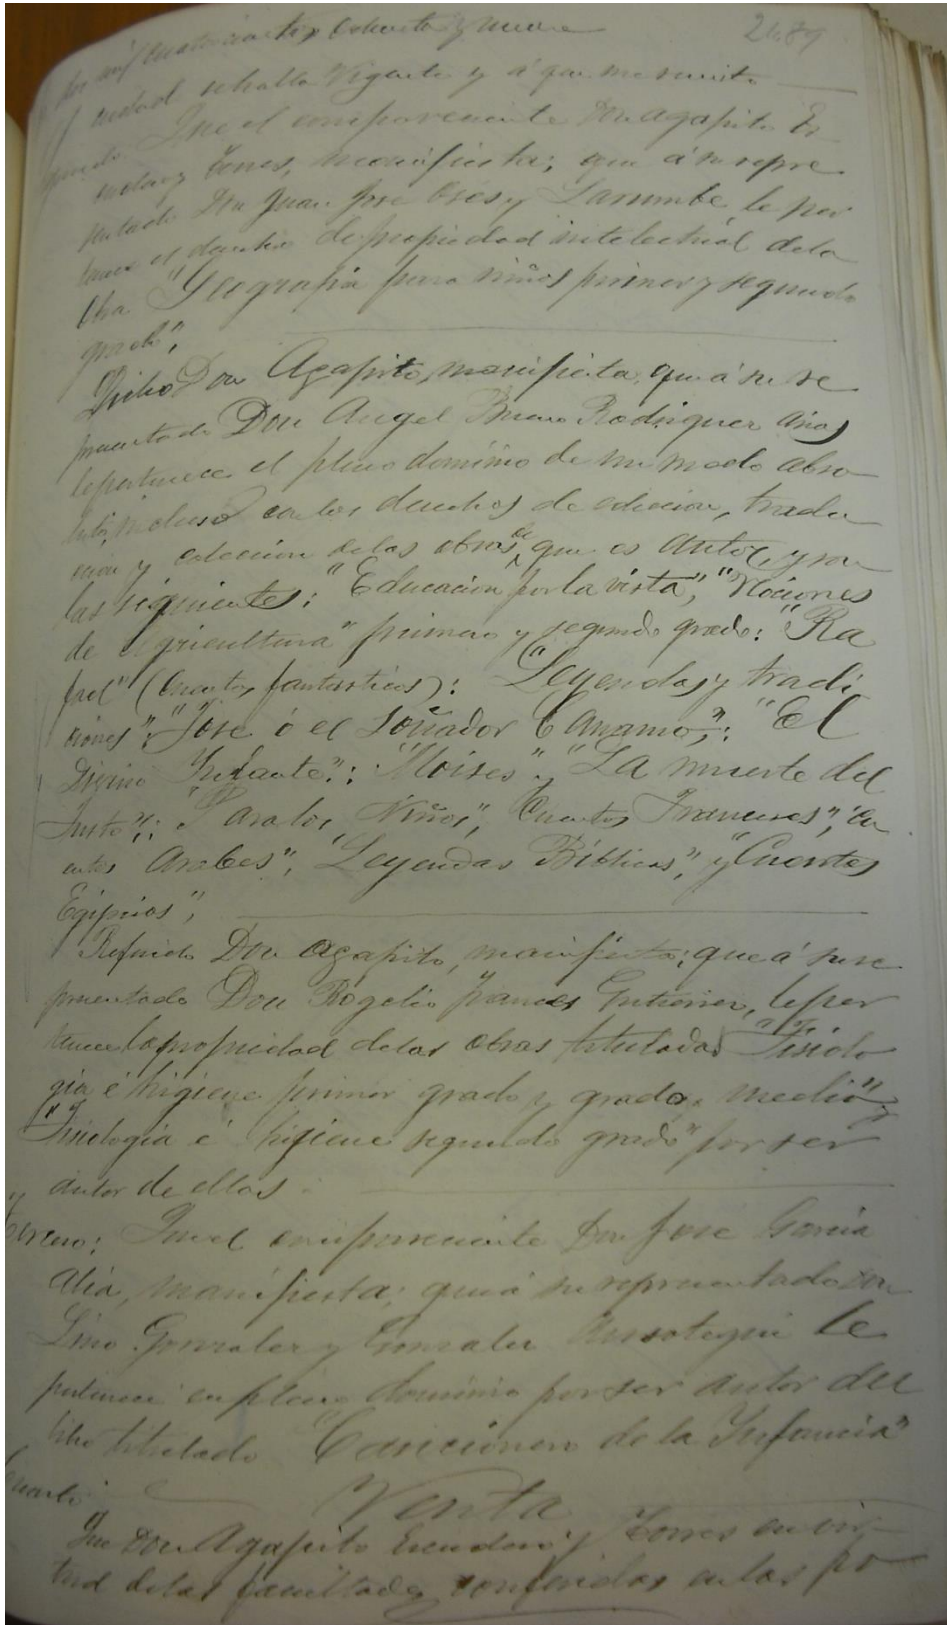 dos mil cuatrocientos ochenta y nueve 2489
cuidad se halla vigente y á que me remito
Que el compareciente Don Agapito Es
cudero y Torres, manifiesta; que á su repre
sentado Don Juan José Osés y Larumbe, le per
tenece el derecho de propiedad intelectual de la
obra "Geografia para niños primer y segundo
grado",
Dicho Don Agapito, manifiesta, que á su re
presentado Don Angel Bueno Rodriguez Arias
le pertenece el pleno dominio de un modo abso
luto, incluso con los derechos de edicion, traduc
cion y coleccion de las obras de que es autor, y son
las siguientes: "Educacion por la vista", "Nociones
de Agricultura" primero y segundo grado: "Ra
fael" (Cuentos fantasticos): "Leyendas y tradi
ciones": "José ó el Soñador Cananeo": "El
Divino Infante": "Moises" y "La muerte del
Justo": "Para los Niños", "Cuentos Franceses", "Cu
entos Arabes", "Leyendas Biblicas", y "Cuentos
Egipcios",
Referido Don Agapito, manifiesta; que á su re
presentado Don Rogelio Frances Gutierrez, le per
tenece la propiedad de las obras tituladas "Fisiolo
gia é higiene primer grado y grado medio" y
"Fisiologia é higiene segundo grado" por ser
autor de ellas.
Tercero: Que el compareciente Don José Garcia
manifiesta; que á su representado Don
Lino Gonzalez y Gonzalez Ansotegui le
pertenece en pleno dominio por ser autor del
libro titulado "Canciones de la Infancia"
Venta
Cuarto
Que Don Agapito Escudero y Torres en vir
tud de las facultades conferidas en los po